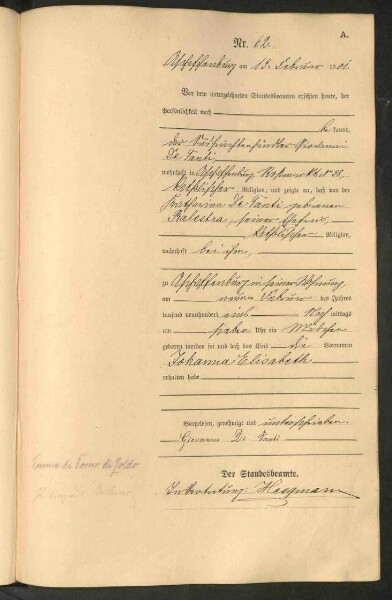 A.
Nr. 62.
Aschaffenburg am 13. Februar 1901.
Vor dem unterzeichneten Standesbeamten erschien heute, der
Persönlichkeit nach
bekannt,
der Giovanni
De Santi,
wohnhaft in Aschaffenburg, No 88,
katholischer Religion, und zeigte an, daß von der
De Santi, geborenen
Balestra, seiner Ehefrau,
katholischer Religion,
wohnhaft bei ihm,
zu Aschaffenburg in seiner Wohnung
am neunten Februar des Jahres
tausend neunhundert eins Nachmittags
um sieben Uhr ein Mädchen
geboren worden sei und daß das Kind die Vornamen
Johanna Elisabeth
erhalten habe
Vorgelesen, genehmigt und unterschrieben
Giovanni De Santi
Der Standesbeamte.
In Vertretung: